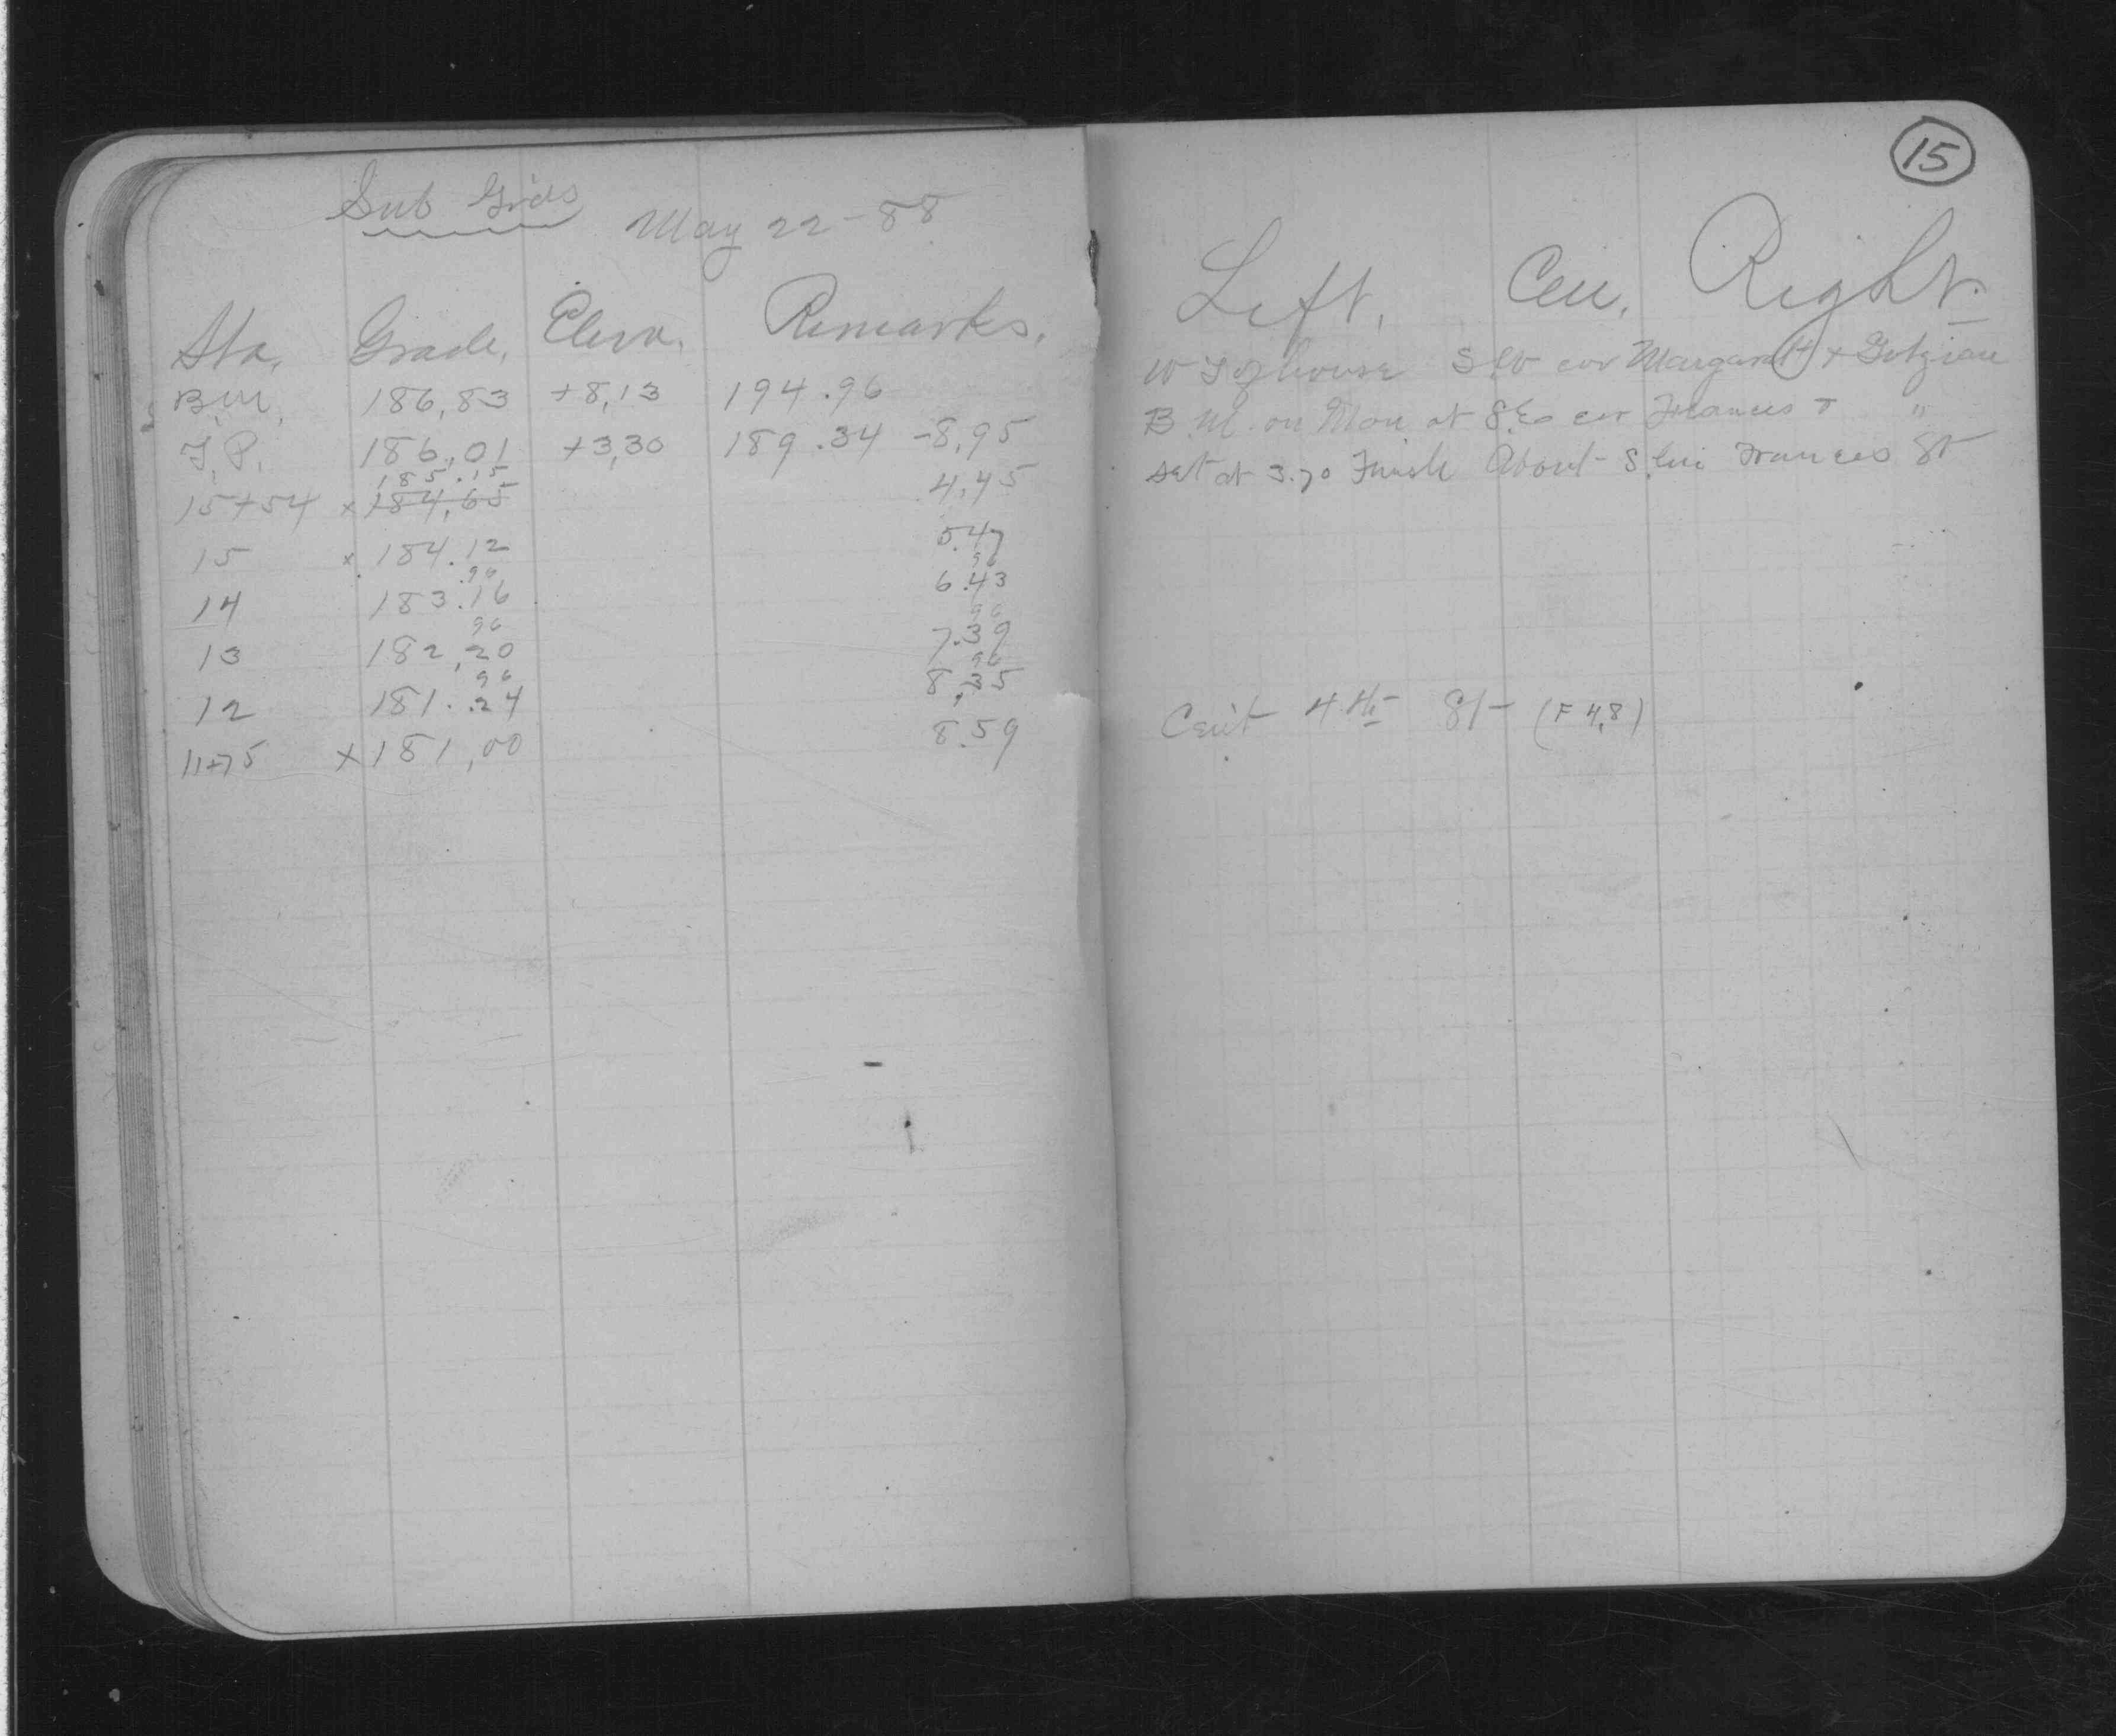 Sub Grds
May 22-88
Sta. Grade. Elevn. Remarks.
B.M. 186.83 +8.13 194.96
T.P. 186.01 +3.30 189.34 -8.95
185.15
15+54 x 184.65 4.45
15 x 184.12 5.47
.96 96
14 183.16 6.43
96 96
13 182.20 7.39
96 96
12 181.24 8.35
11+75 x 181.00 8.59
15
Left. Cen. Right.
W T of house S.W cor Margaret + Gotzian
B.M. on Mon at S.E cor Frances + "
set at 3.70 Finish About S. lin Frances St
Cent 4th St (F 4.8)